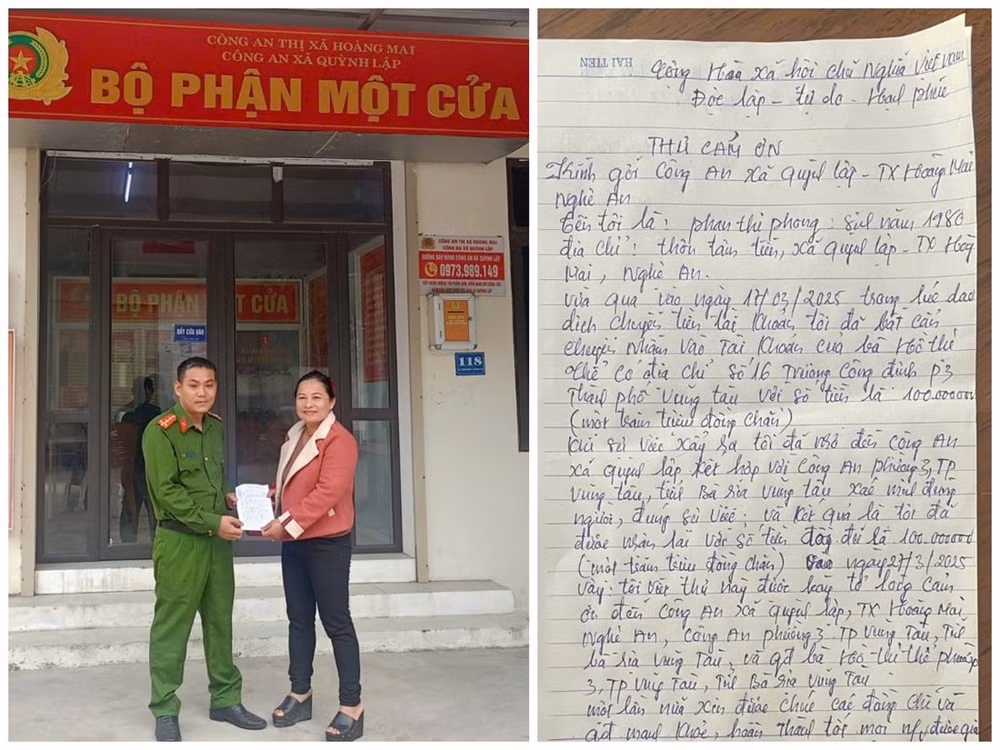 CÔNG AN THỊ XÃ HOÀNG MAI
CÔNG AN XÃ QUỲNH LẬP
BỘ PHẬN MỘT CỬA
CÔNG AN THỊ XÃ HOÀNG MAI
CÔNG AN XÃ QUỲNH LẬP
ĐƯỜNG DÂY NÓNG CÔNG AN XÃ QUỲNH LẬP
0973.989.149
BỘ PHẬN MỘT CỬA
ĐẨY CỬA VÀO
118
HẢI TIẾN
Cộng Hoà xã hội chủ Nghĩa Việt Nam
Độc lập - tự do - Hạnh phúc
THƯ CẢM ƠN
Kính gởi Công An xã Quỳnh lập - TX Hoàng Mai
Nghệ An
Tên tôi là: phan thị phong: sinh năm 1980
địa chỉ: thôn tâm tiến, xã Quỳnh lập, TX Hoàng
Mai, Nghệ An.
vừa qua vào ngày 17/03/2025 trong lúc dao
dịch chuyển tiền tài khoản tôi đã bất cẩn
chuyển Nhầm vào Tài khoản của bà Hồ thị
thể có địa chỉ số 16 Trương Công định P3
Thành phố Vũng tàu với số tiền là 100.000000
(một trăm triệu đồng chẵn)
khi sự việc xảy ra tôi đã nhờ đến công An
xã Quỳnh lập kết hợp với Công An phường 3, TP
Vũng tàu, tỉnh Bà Rịa Vũng tàu xác minh đúng
người, đúng sự việc; và kết quả là tôi đã
được nhận lại với số tiền đầy đủ là 100.000000
(một trăm triệu đồng chẵn) vào ngày 27/3/2025
vậy: tôi viết thư này được bày tỏ lòng cảm
ơn đến công An xã Quỳnh lập, TX Hoàng Mai
Nghệ An, Công An phường 3 TP Vũng Tàu, Tỉnh
bà rịa Vũng Tàu, và gđ bà Hồ thị thể phường
3, TP Vũng Tàu, Tỉnh Bà Rịa Vũng Tàu
một lần nữa xin được chúc các đồng chí và
gđ mạnh khoẻ, hoàn thành tốt mọi